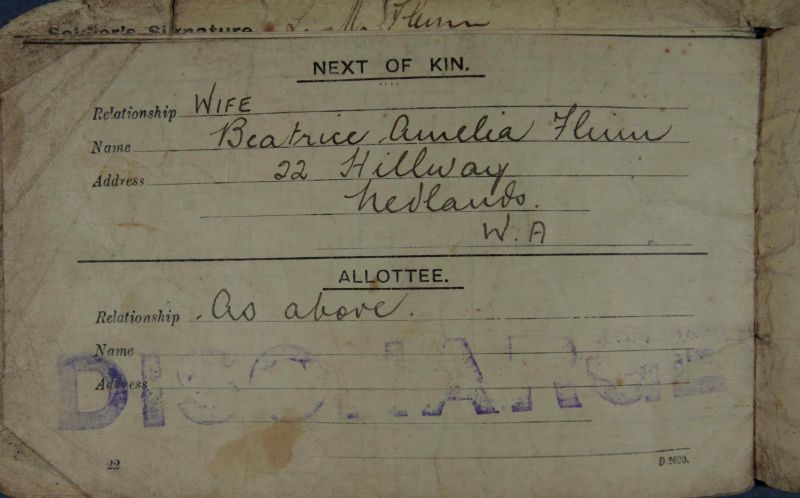 Soldier's Signature L. M. Flinn
NEXT OF KIN.
Relationship WIFE
Name Beatrice Amelia Flinn
Address 22 Hillway
Nedlands.
W.A
ALLOTTEE.
Relationship As above.
Name
Address
DISCHARGE
22 D.2600.